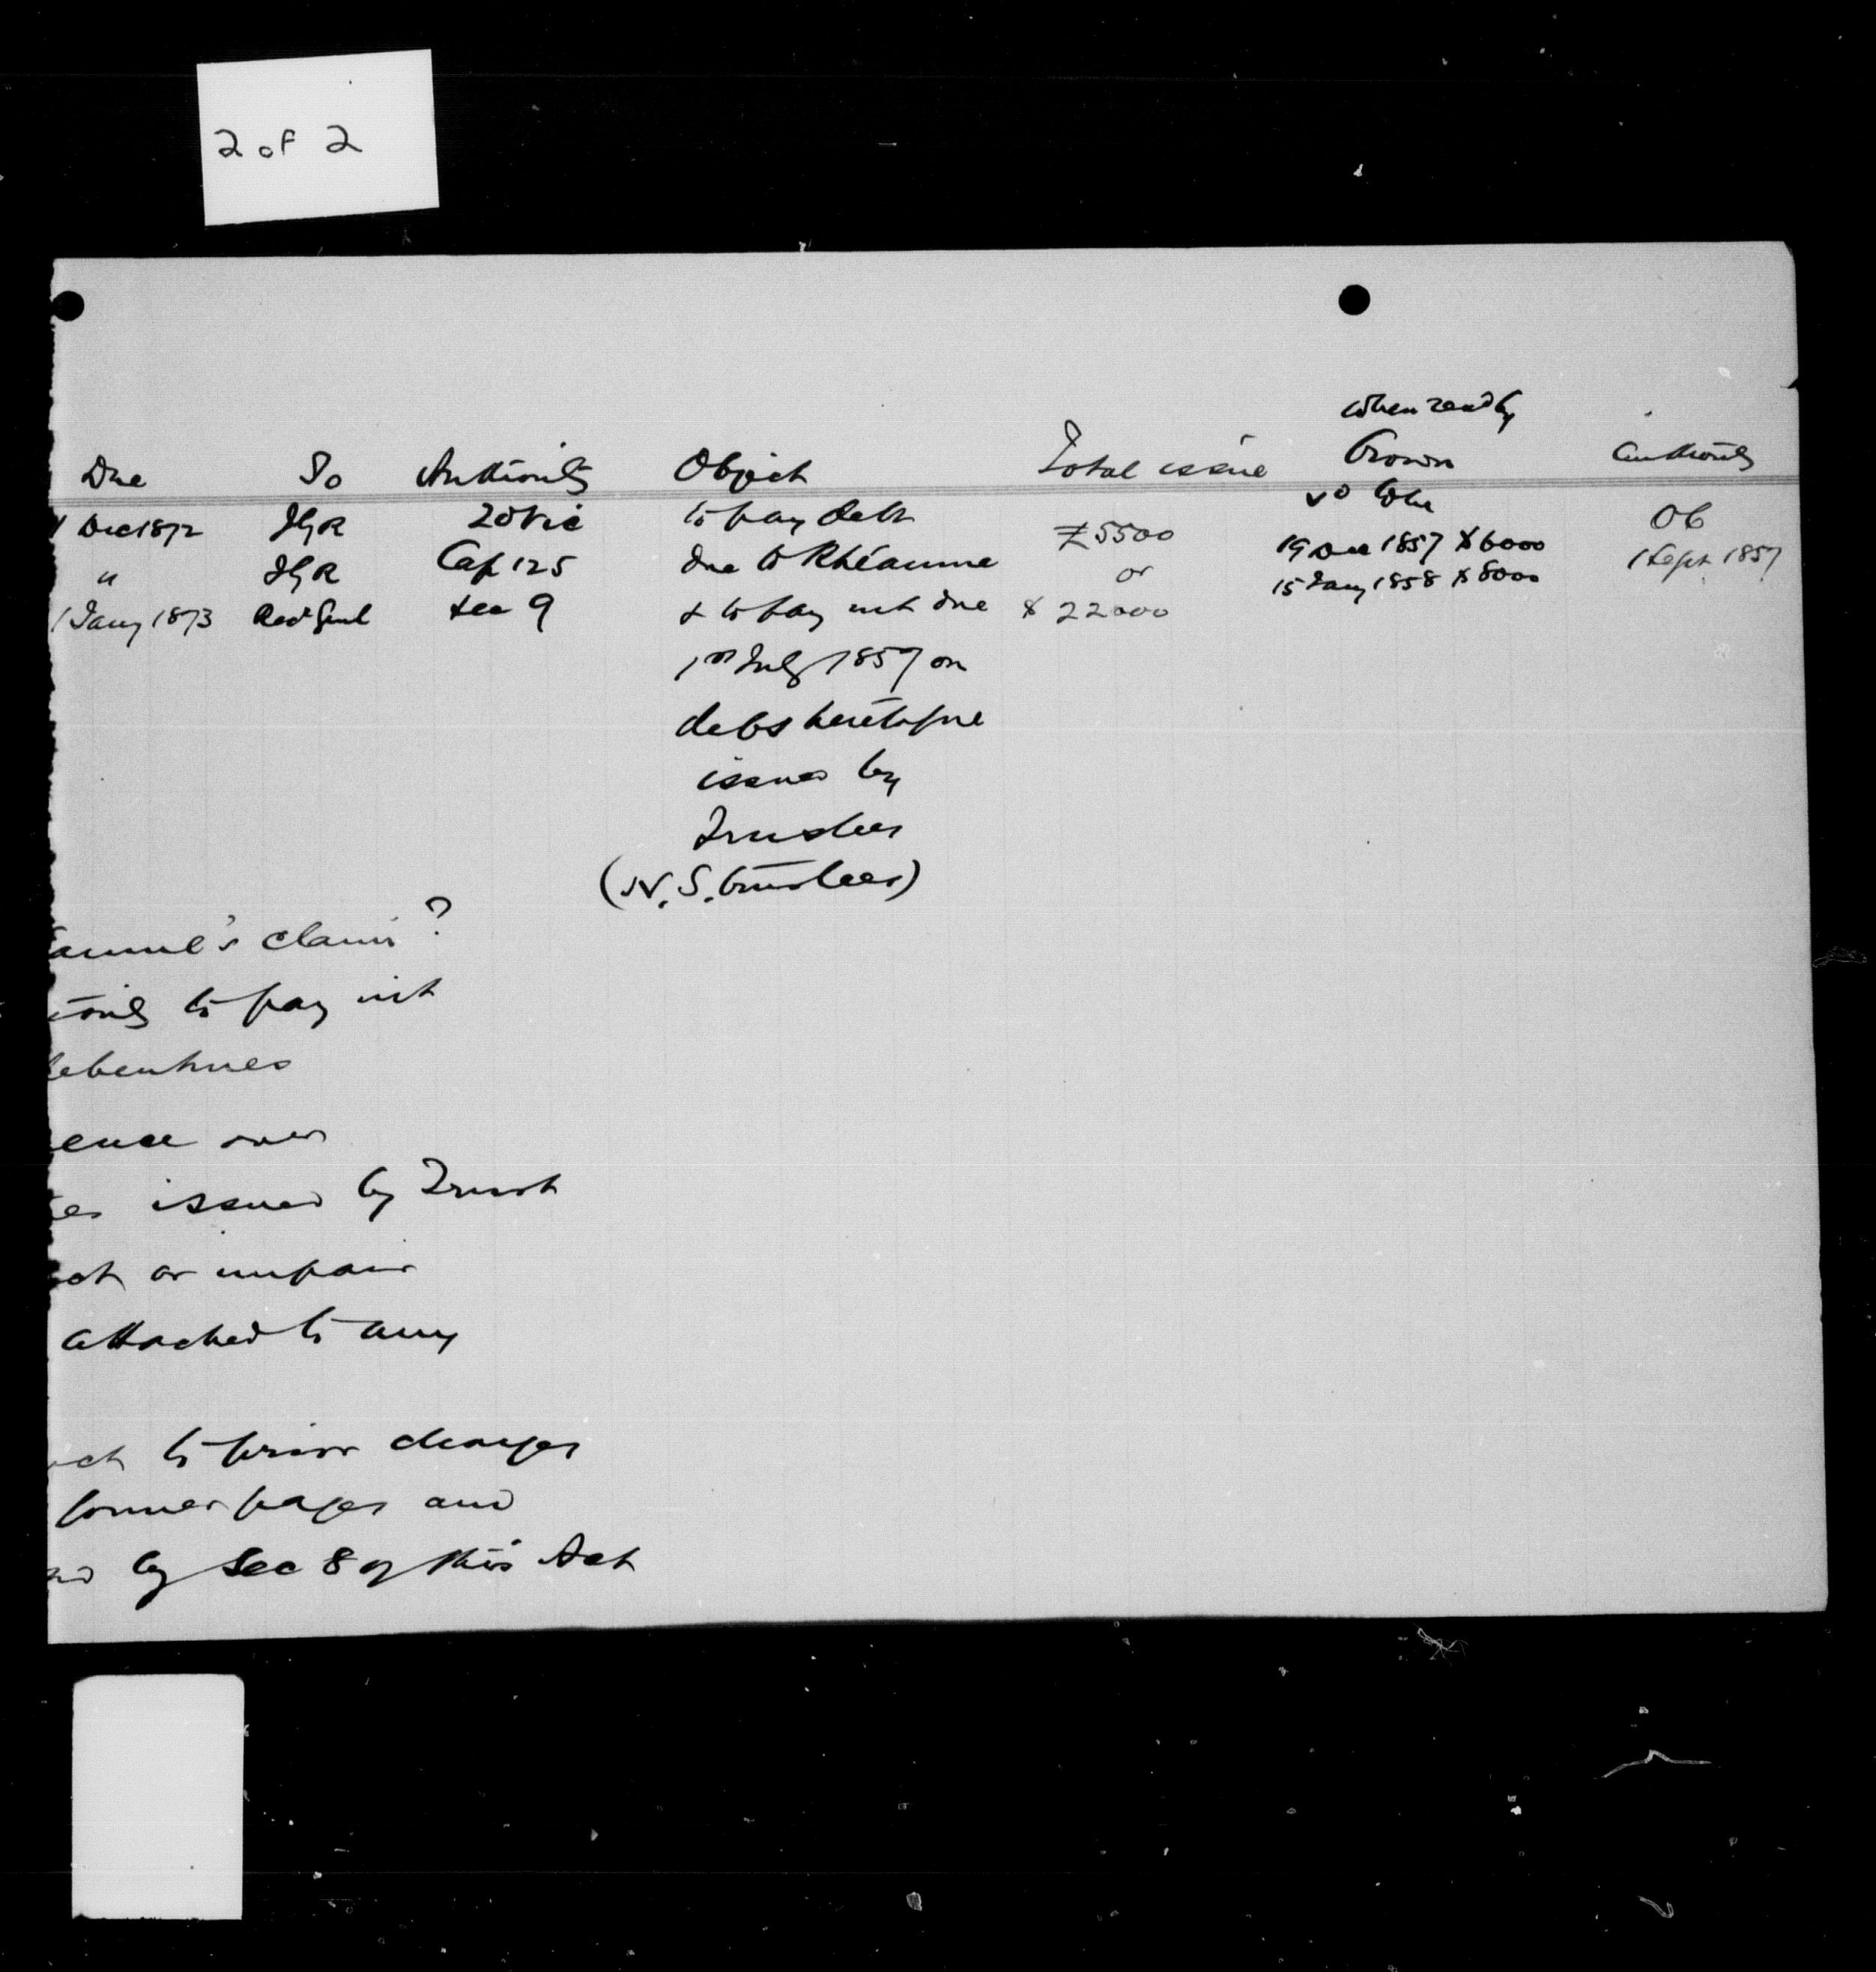 2 of 2
When recd by
Due To Authority Object Total issue Crown Authority
1 Dec 1872 JGR 20 Vic to pay debt £5500 OC
" JGR Cap 125 due to Rhéaume or 19 Dec 1857 $6000 1 Sept 1857
1 Jany 1873 Rec Genl sec 9 & to pay int due $22000 15 Jany 1858 $8000
1st July 1857 on
debs heretofore
issued by
Trustees
(N.S. trustees)
aume's claim?
ority to pay int
debentures
ence over
es issued by Trust
ect or impair
attached to any
ect to prior charges
former pages and
ed by Sec 8 of this Act